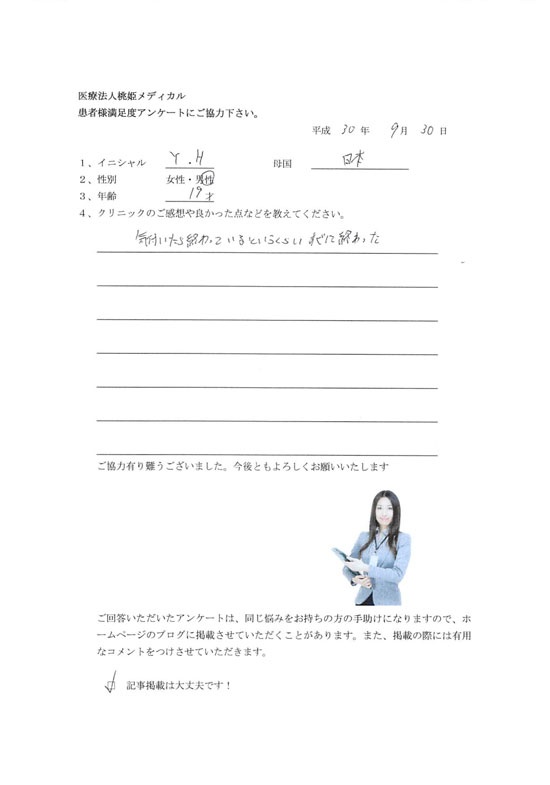 医療法人桃姫メディカル
患者様満足度アンケートにご協力下さい。
平成 30 年 9月 30 日
1、イニシャル Y.H 母国 日本
2、性別 女性・男性
3、年齢 19才
4、クリニックのご感想や良かった点などを教えてください。
気付いたら終わっているというくらいすぐに終わった
ご協力有り難うございました。今後ともよろしくお願いいたします
ご回答いただいたアンケートは、同じ悩みをお持ちの方の手助けになりますので、ホ
ームページのブログに掲載させていただくことがあります。また、掲載の際には有用
なコメントをつけさせていただきます。
記事掲載は大丈夫です！